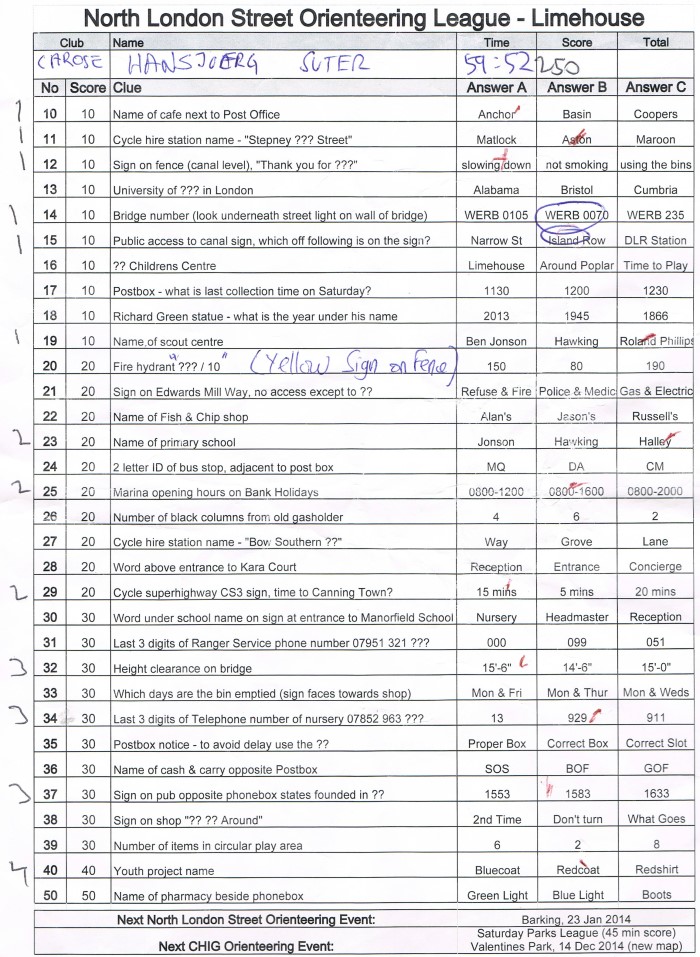 North London Street Orienteering League - Limehouse
Club Name Time Score Total
CHAROSE HANSJOERG SUTER 59:52 250
No Score Clue Answer A Answer B Answer C
1 10 10 Name of cafe next to Post Office Anchor Basin Coopers
1 11 10 Cycle hire station name - "Stepney ??? Street" Matlock Aston Maroon
1 12 10 Sign on fence (canal level), "Thank you for ???" slowing down not smoking using the bins
13 10 University of ??? in London Alabama Bristol Cumbria
1 14 10 Bridge number (look underneath street light on wall of bridge) WERB 0105 WERB 0070 WERB 235
1 15 10 Public access to canal sign, which off following is on the sign? Narrow St Island Row DLR Station
16 10 ?? Childrens Centre Limehouse Around Poplar Time to Play
17 10 Postbox - what is last collection time on Saturday? 1130 1200 1230
18 10 Richard Green statue - what is the year under his name 2013 1945 1866
1 19 10 Name of scout centre Ben Jonson Hawking Roland Phillips
20 20 Fire hydrant "??? / 10" (Yellow Sign on Fence) 150 80 190
21 20 Sign on Edwards Mill Way, no access except to ?? Refuse & Fire Police & Medic Gas & Electric
22 20 Name of Fish & Chip shop Alan's Jason's Russell's
2 23 20 Name of primary school Jonson Hawking Halley
24 20 2 letter ID of bus stop, adjacent to post box MQ DA CM
2 25 20 Marina opening hours on Bank Holidays 0800-1200 0800-1600 0800-2000
26 20 Number of black columns from old gasholder 4 6 2
27 20 Cycle hire station name - "Bow Southern ??" Way Grove Lane
28 20 Word above entrance to Kara Court Reception Entrance Concierge
2 29 20 Cycle superhighway CS3 sign, time to Canning Town? 15 mins 5 mins 20 mins
30 30 Word under school name on sign at entrance to Manorfield School Nursery Headmaster Reception
31 30 Last 3 digits of Ranger Service phone number 07951 321 ??? 000 099 051
3 32 30 Height clearance on bridge 15'-6" 14'-6" 15'-0"
33 30 Which days are the bin emptied (sign faces towards shop) Mon & Fri Mon & Thur Mon & Weds
3 34 30 Last 3 digits of Telephone number of nursery 07852 963 ??? 13 929 911
35 30 Postbox notice - to avoid delay use the ?? Proper Box Correct Box Correct Slot
36 30 Name of cash & carry opposite Postbox SOS BOF GOF
3 37 30 Sign on pub opposite phonebox states founded in ?? 1553 1583 1633
38 30 Sign on shop "?? ?? Around" 2nd Time Don't turn What Goes
39 30 Number of items in circular play area 6 2 8
4 40 40 Youth project name Bluecoat Redcoat Redshirt
50 50 Name of pharmacy beside phonebox Green Light Blue Light Boots
Next North London Street Orienteering Event: Barking, 23 Jan 2014
Saturday Parks League (45 min score)
Next CHIG Orienteering Event: Valentines Park, 14 Dec 2014 (new map)